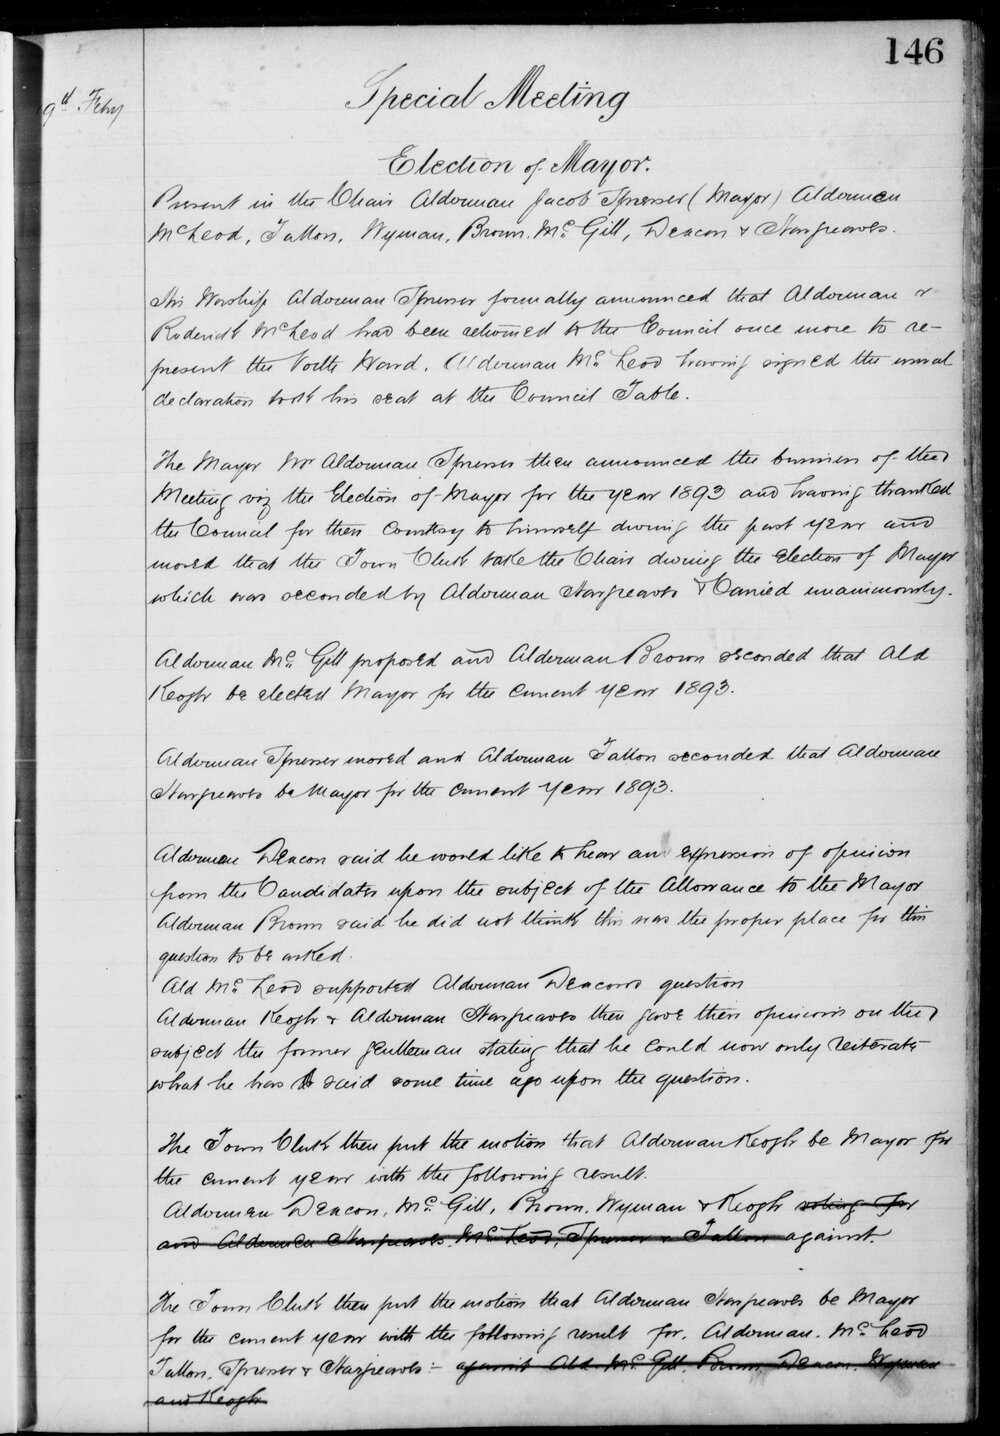 146
9th Feby
Special Meeting
Election of Mayor.
Present in the Chair Alderman Jacob Spresser (Mayor) Aldermen
McLeod, Tatton, Wyman, Brown, McGill, Deacon & Hargreaves.
His Worship Alderman Spresser formally announced that Alderman
Roderick McLeod had been returned to the Council once more to re-
present the North Ward. Alderman McLeod having signed the usual
declaration took his seat at the Council Table.
The Mayor Mr Alderman Spresser then announced the business of the
Meeting viz the Election of Mayor for the year 1893 and having thanked
the Council for their Courtesy to himself during the past year and
moved that the Town Clerk take the Chair during the Election of Mayor
which was seconded by Alderman Hargreaves & Carried unanimously.
Alderman McGill proposed and Alderman Brown seconded that Ald
Keogh be elected Mayor for the current year 1893.
Alderman Spresser moved and Alderman Tatton seconded that Alderman
Hargreaves be Mayor for the current year 1893.
Alderman Deacon said he would like to hear an expression of opinion
from the Candidates upon the subject of the Allowance to the Mayor
Alderman Brown said he did not think this was the proper place for this
question to be asked.
Ald McLeod supported Alderman Deacons question
Alderman Keogh & Alderman Hargreaves then gave their opinions on the
subject the former gentleman stating that he could now only reiterate
what he has said some time ago upon the question.
The Town Clerk then put the motion that Alderman Keogh be Mayor for
the current year with the following result.
Aldermen Deacon, McGill, Brown, Wyman & Keogh voting for
and Aldermen Hargreaves McLeod, Spresser & Tatton against.
The Town Clerk then put the motion that Alderman Hargreaves be Mayor
for the current year with the following result for. Alderman. McLeod
Tatton, Spresser & Hargreaves:- against Ald McGill, Brown, Deacon, Wyman
and Keogh